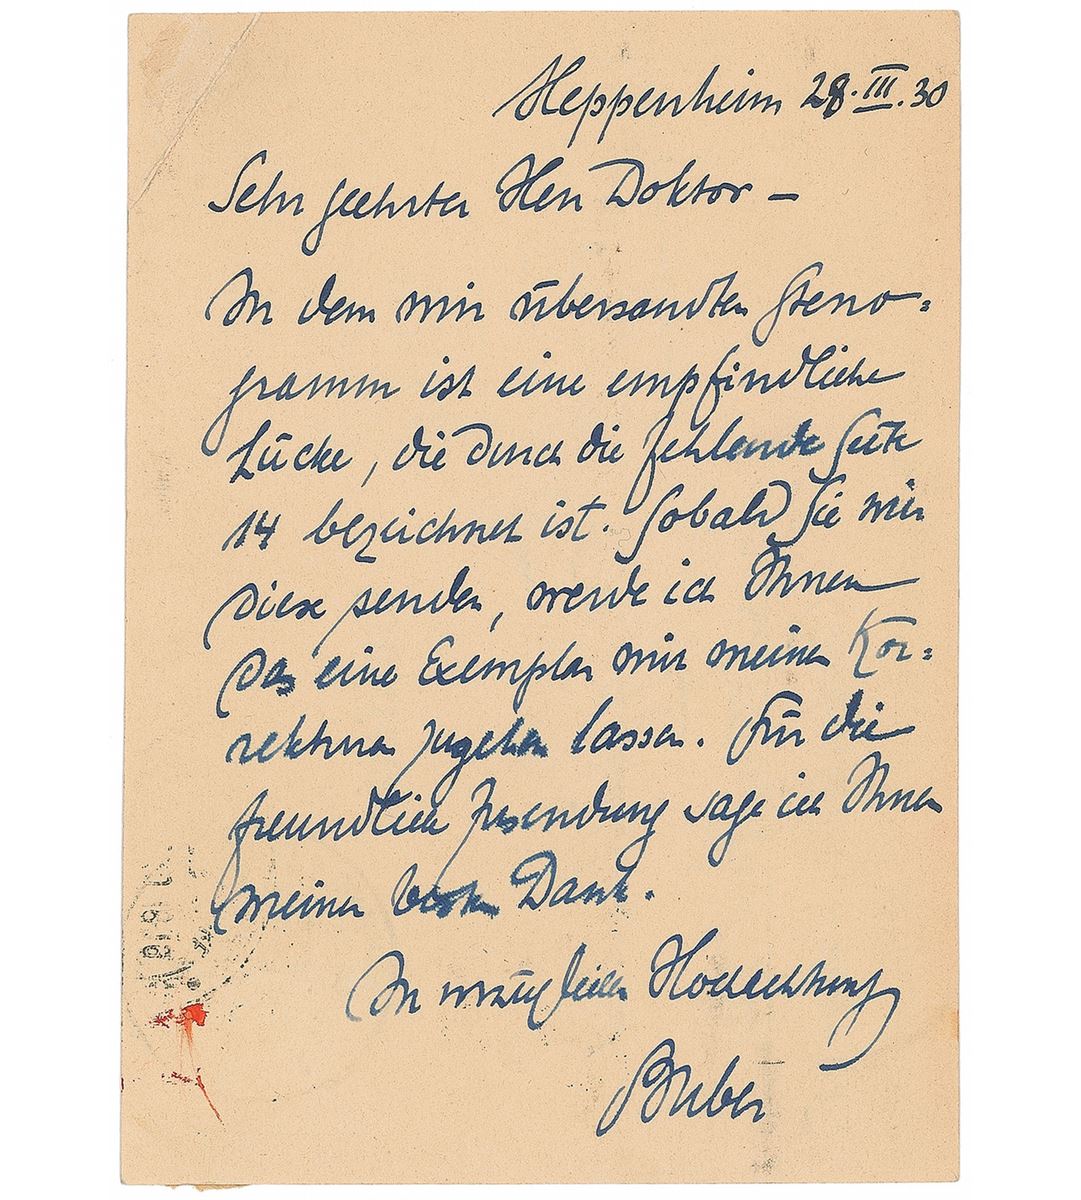 Heppenheim 28. III. 30
Sehr geehrter Herr Doktor –
In dem mir übersandten Steno=
gramm ist eine empfindliche
Lücke, die durch die fehlende Seite
14 bezeichnet ist. Sobald Sie mir
diese senden, werde ich Ihnen
das eine Exemplar mit meinen Kor=
rekturen zugehen lassen. Für die
freundliche Zusendung sage ich Ihnen
meinen besten Dank.
In vorzüglicher Hochachtung
Buber